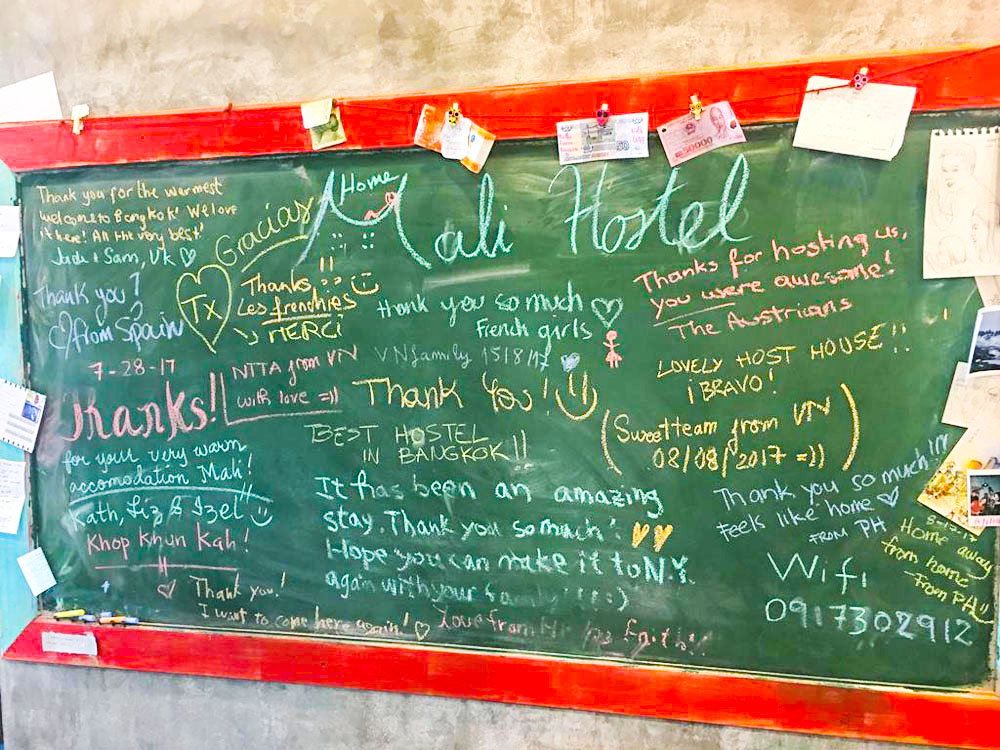 Home
Mali Hostel
Thank you for the warmest
welcome to Bangkok! We love
it here! All the very best!
Jade & Sam, UK ♡
Gracias
Tx
Thanks!! :)
Les frenchies
↳ MERCI
Thank you!
♡ from Spain
7-28-17
Thanks!!
for your very warm
accomodation Mali!
Kath, Liz & Izel :)
Khop Khun Kah!
NTTA from VN
with love =))
thank you so much ♡
French girls
VN family 15/8/17
Thank You! :)
BEST HOSTEL
IN BANGKOK!!
It has been an amazing
stay. Thank you so much!
Hope you can make it to N.Y.
again with your family!!! :)
Love from
♡ Thank you!
I want to come here again! ♡
Thanks for hosting us,
you were awesome!
The Austrians
LOVELY HOST HOUSE!!
¡BRAVO!
(Sweetteam from VN
08/08/2017 =))
Thank you so much!!!
Feels like home ♡
FROM PH
Home away
from home
From PH
Wifi
0917302912
50000